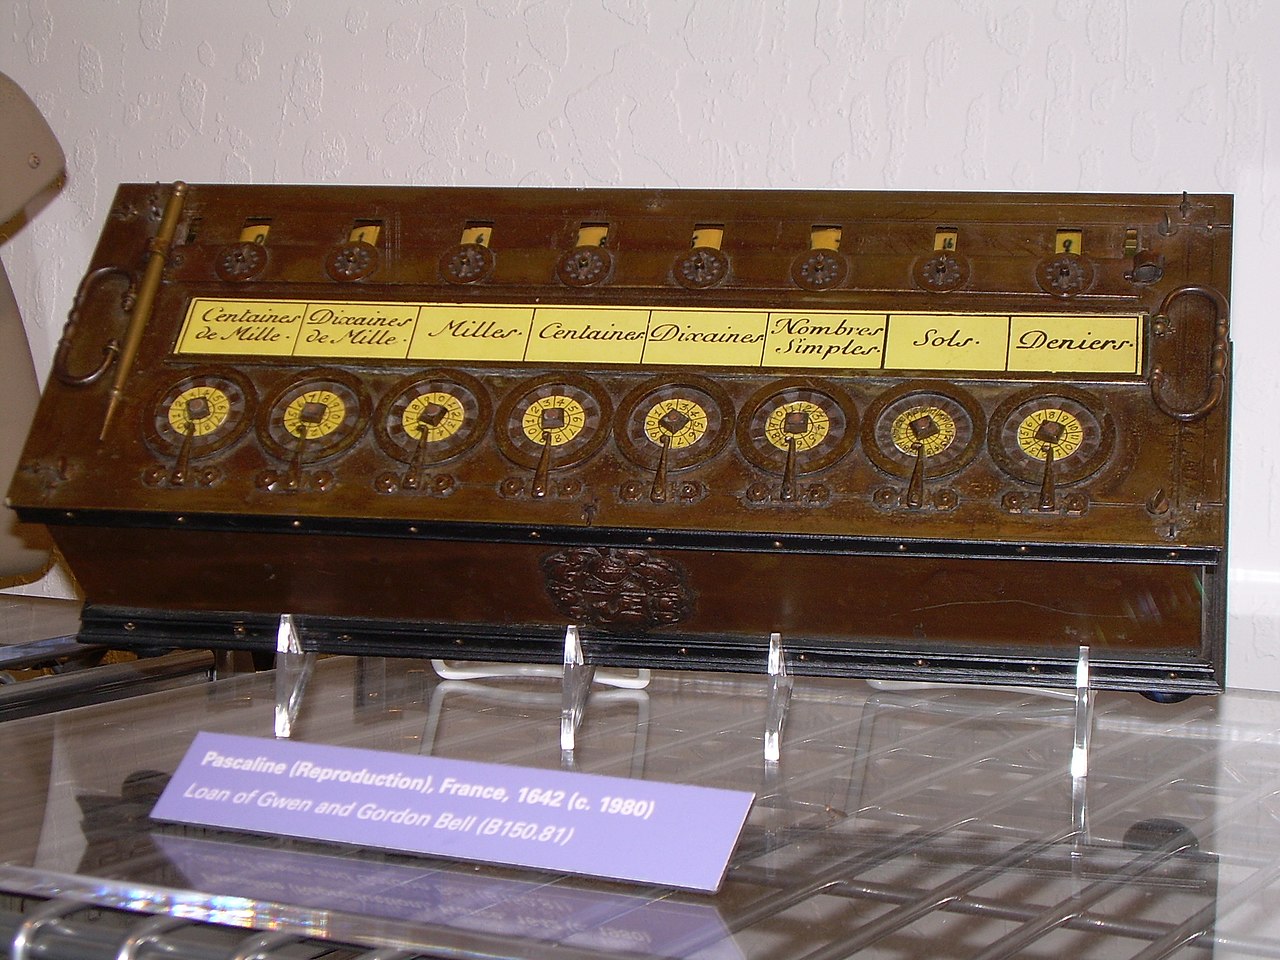 Centaines
de Mille.
Dixaines
de Mille.
Milles.
Centaines
Dixaines
Nombres
Simples.
Sols.
Deniers.
Pascaline (Reproduction), France, 1642 (c. 1980)
Loan of Gwen and Gordon Bell (B150.81)